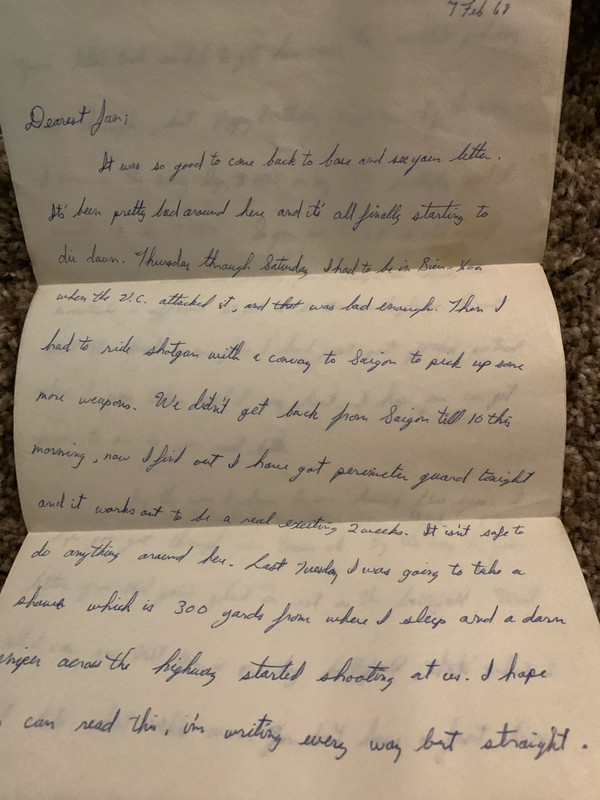 7 Feb 68
Dearest Jan;
It was so good to come back to base and see your letter.
It's been pretty bad around here and it's all finally starting to
die down. Thursday through Saturday I had to be in Bien Hoa
when the V.C. attacked it, and that was bad enough. Then I
had to ride shotgun with a convoy to Saigon to pick up some
more weapons. We didn't get back from Saigon till 10 this
morning, now I find out I have got perimeter guard tonight
and it works out to be a real exciting 2 weeks. It isn't safe to
do anything around here. Last Tuesday I was going to take a
shower which is 300 yards from where I sleep and a darn
sniper across the highway started shooting at us. I hope
can read this, i'm writing every way but straight.